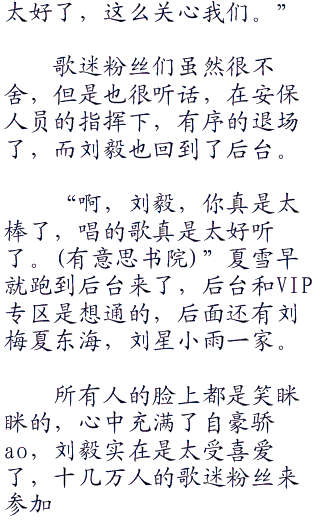 太好了，这么关心我们。”
歌迷粉丝们虽然很不
舍，但是也很听话，在安保
人员的指挥下，有序的退场
了，而刘毅也回到了后台。
“啊，刘毅，你真是太
棒了，唱的歌真是太好听
了。(有意思书院)”夏雪早
就跑到后台来了，后台和VIP
专区是想通的，后面还有刘
梅夏东海，刘星小雨一家。
所有人的脸上都是笑眯
眯的，心中充满了自豪骄
ao，刘毅实在是太受喜爱
了，十几万人的歌迷粉丝来
参加